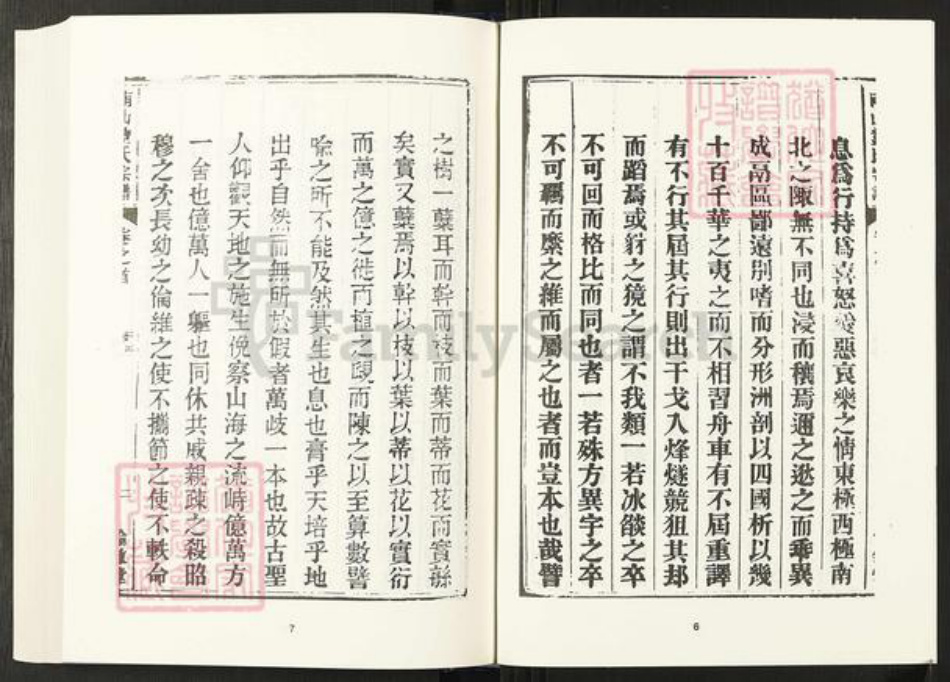 息爲行持爲喜怒愛惡哀樂之情東極西極南
北之陬無不同也浸而穰焉邇之逖之而乖異
成鬲區鄙遠別嗜而分形洲剖以四國析以幾
十百千華之夷之而不相習舟車有不屆重譯
有不行其屆其行則出干戈入烽燧競狙其刦
而蹈焉或豺之獍之謂不我類一若冰燄之卒
不可回而格比而同也者一若殊方異字之卒
不可羈而縻之維而屬之也者而豈本也哉譬
6
之樹一蘖耳而幹而枝而葉而蒂而花而實繇
矣實又蘖焉以幹以枝以葉以蒂以花以實衍
而萬之億之徙而植之 而陳之以至算數譬
喩之所不能及然其生也息也膏乎天培乎地
出乎自然而無所於假者萬歧一本也故古聖
人仰觀天地之施生俛察山海之流峙億萬方
一舍也億萬人一軀也同休共戚親疎之殺昭
穆之次長幼之倫維之使不攜節之使不軼命
卷之首
二
7
FamilySearch